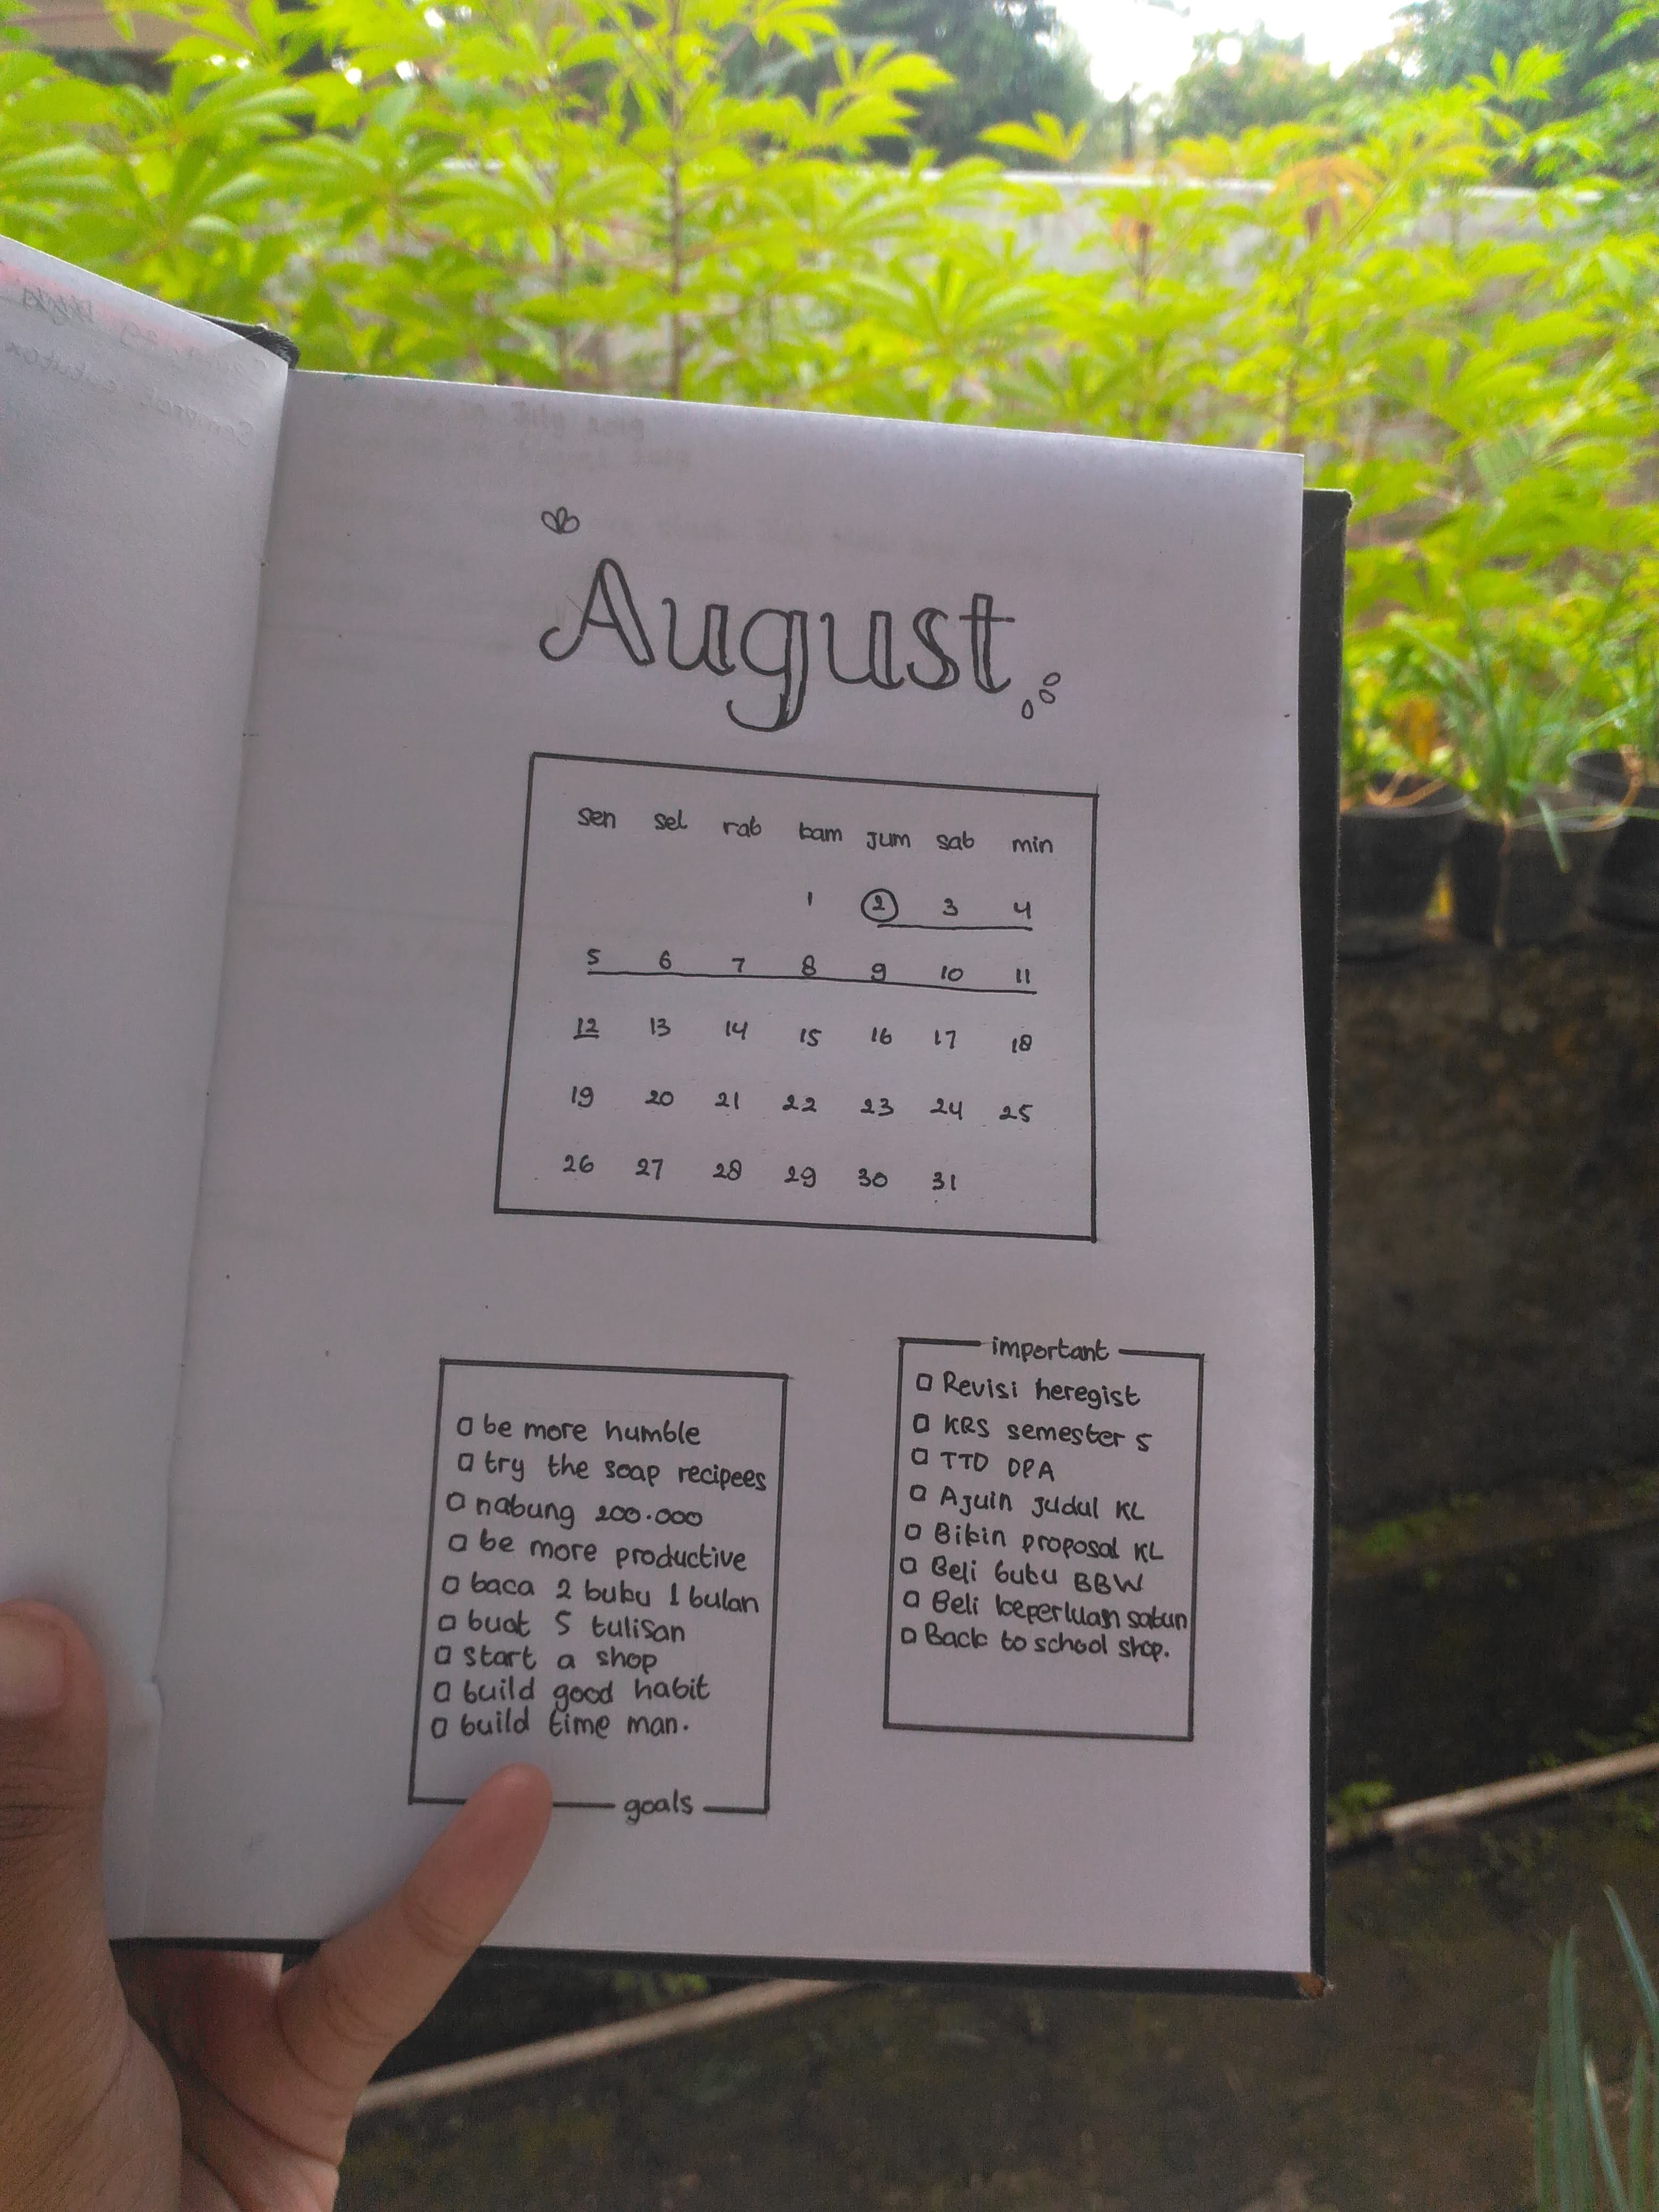 in July 2019
August 2019
August
sen sel rab kam jum sab min
1 2 3 4
5 6 7 8 9 10 11
12 13 14 15 16 17 18
19 20 21 22 23 24 25
26 27 28 29 30 31
be more humble
try the soap recipees
nabung 200.000
be more productive
baca 2 buku 1 bulan
buat 5 tulisan
start a shop
build good habit
build time man.
goals
important
Revisi heregist
KRS semester 5
TTD DPA
Ajuin judul KL
Bikin proposal KL
Beli buku BBW
Beli keperluan sabun
Back to school shop.